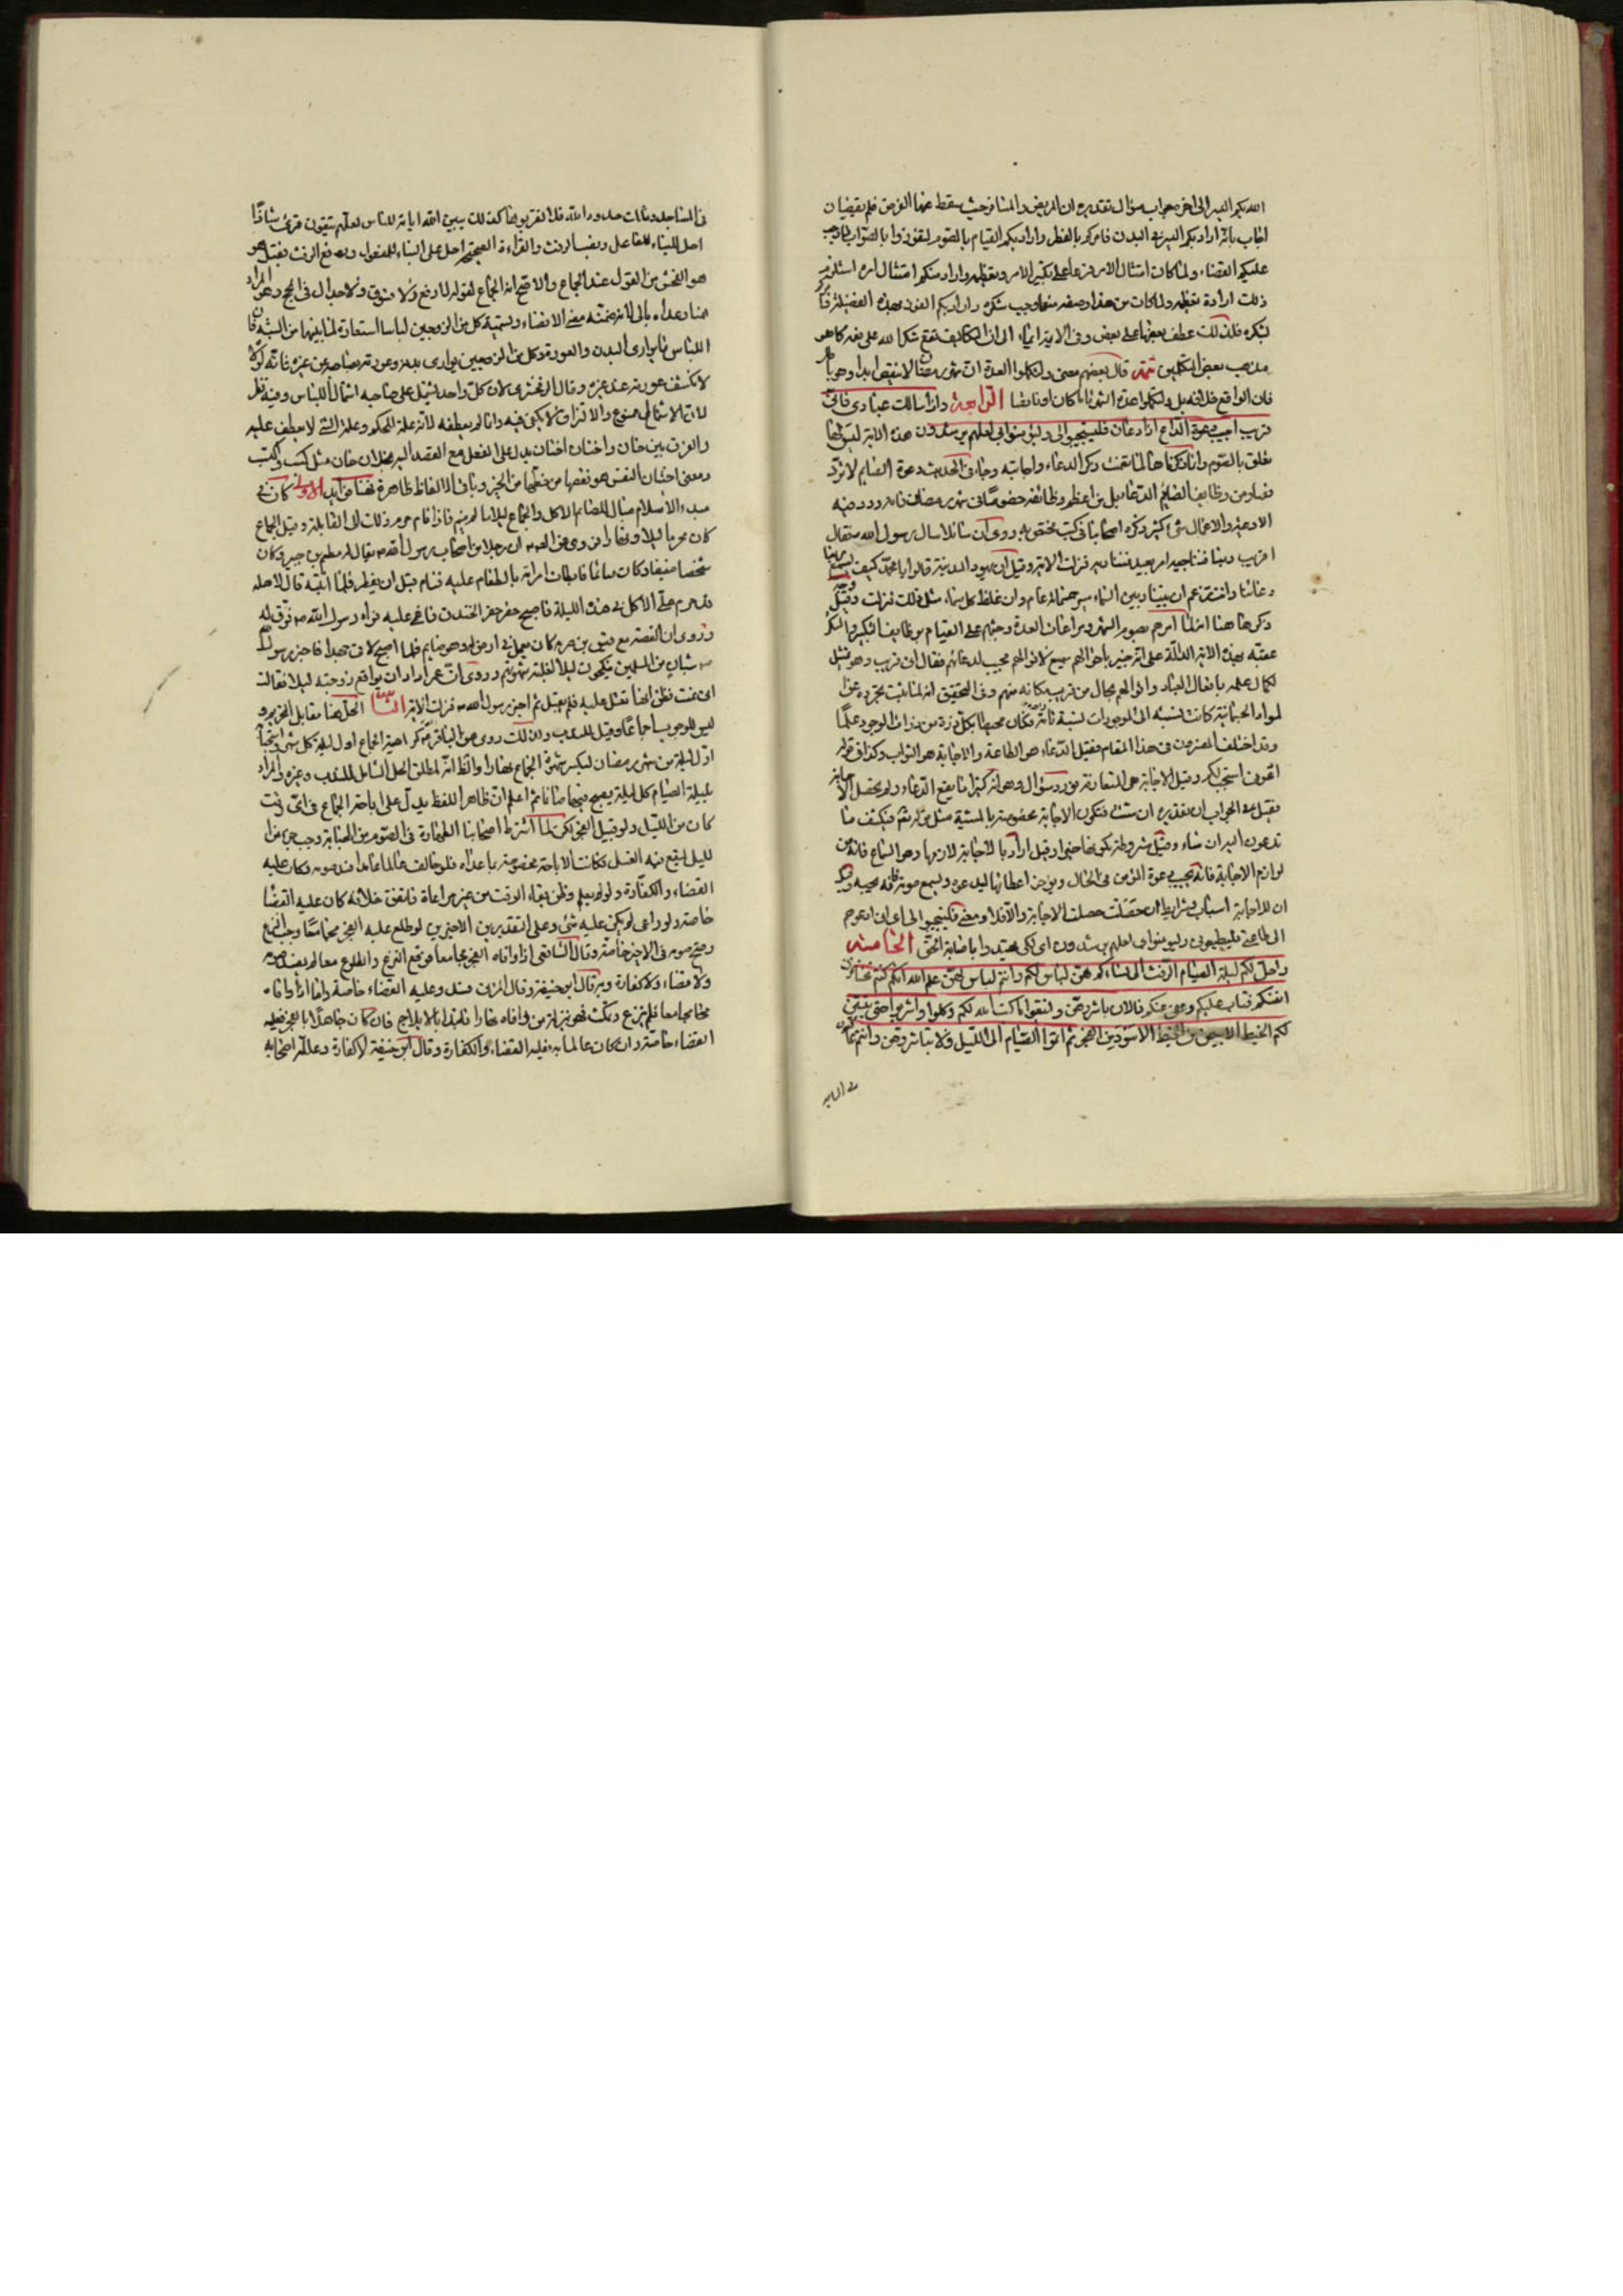 الله بكم اليسر الى اخره جواب سؤال تقديره ان المريض والمسافر حيث سقط عنهما الفرض فلم يقضيان
اجاب بانه اراد بكم اليسر في البدن فامركم بالفطر واراد بكم القيام بالصوم لتفوزوا بالصواب
عليكم القضاء ولما كان امتثال الامر على تكبير الامر وتعظيمه واراد منكم امتثال امره استلزم
ذلك ارادة تعظيمه ولما كان من هذا وصفه منعما وجب شكره واراد بكم الفوز بهذه الفضيلة
لشكره فلذلك عطف بعضها على بعض وفي الاية ايماء الى ان التكاليف تقع شكرا لله على نعمه كما هو
مذهب بعض المتكلمين تتمة قال بعضهم معنى ولتكملوا العدة ان شهر رمضان لا ينقص ابدا وهو
فان الواقع خلافه بل ولتكملوا عدة الشهر تاما كان او ناقصا الرابعة واذا سالك عبادي عني فاني
قريب اجيب دعوة الداع اذا دعان فليستجيبوا لي وليؤمنوا بي لعلهم يرشدون هذه الاية ليس لها
تعلق بالصوم وانما ذكرناها لما تضمنت ذكر الدعاء واجابته وجاء في الحديث دعوة الصايم لا ترد
فصار من وظايف الصايم الدعاء بل من اعظم وظائفه خصوصا في شهر رمضان فانه ورد فيه
الادعية والاعمال شيء كثير ذكره اصحابنا في كتب مختص به روى ان سائلا سال رسول الله ص فقال
اقريب ربنا فنناجيه ام بعيد فنناديه فنزلت الاية وقيل ان يهود المدينة قالوا يا محمد كيف يسمع ربنا
دعائنا وانت تزعم ان بيننا وبين السماء مسيرة خمسمائة عام وان غلظ كل سماء مثل ذلك فنزلت وقيل
ذكرها هنا انه لما امرهم بصوم الشهر ومراعات العدة وحثهم على القيام بوظايف التكبير والشكر
عقبه بهذه الاية الدالة على انه خبير باحوالهم سميع لاقوالهم مجيب لدعائهم فقال اني قريب وهو تمثيل
لكمال علمه بافعال العباد واقوالهم بحال من قرب مكانه منهم وفي التحقيق انه لما ثبت تجرده عن
المواد الجسمانية كانت نسبته الى الموجودات نسبة فكان محيطا بكل ذرة من ذرات الوجود علما
وقد اختلف المفسرون في هذا المقام فقيل الدعاء هو الطاعة والاجابة هو الثواب وكذا في قوله
ادعوني استجب لكم وقيل الاجابة هي المتعارفة مورد سؤال وهو انه كثيرا ما يقع الدعاء ولم يحصل الاجابة
فقيل في الجواب ان تقديره ان شئت فتكون الاجابة مخصوصة بالمشية مثل قوله فيكشف ما
تدعون اليه ان شاء وقيل مشروطة بكونها خيرا وقيل اراد بالاجابة لازمها وهو السماع فانه من
لوازم الاجابة فانه يجيب دعوة المؤمن في الحال ويؤخر اعطائها ليدعوه ويسمع صوته فانه يحبه
ان للاجابة اسباب وشرايط ان حصلت حصلت الاجابة والا فلا ومعنى فليستجيبوا لي اي ان ادعوهم
الى طاعتي فليطيعوني وليؤمنوا بي لعلهم يرشدون اي لكي يهتدوا باصابة الحق الخامسة
واحل لكم ليلة الصيام الرفث الى نسائكم هن لباس لكم وانتم لباس لهن علم الله انكم كنتم تختانون
انفسكم فتاب عليكم وعفى عنكم فالان باشروهن وابتغوا ما كتب الله لكم وكلوا واشربوا حتى يتبين
لكم الخيط الابيض من الخيط الاسود من الفجر ثم اتموا الصيام الى الليل ولا تباشروهن وانتم عاكفون
في المساجد تلك حدود الله فلا تقربوها كذلك يبين الله اياته للناس لعلهم يتقون قرئ شاذا
احل للبناء للفاعل ونصب الرفث والقراءة الصحيحة احل على البناء للمفعول ورفع الرفث فقيل
هو الفحش من القول عند الجماع والاصح انه الجماع لقوله فلا رفث ولا فسوق ولا جدال في الحج
هنا وعداه بالى لانه ضمنه معنى الافضاء وتسمية كل من الزوجين لباسا استعارة لما بينهما من الشبه فان
اللباس ما يوارى البدن والعورة وكل من الزوجين يوارى بدنه وعورته بصاحبه من غيره فانه
لانكشف عورته عند غيره وقال الزمخشري لان كل واحد يشتمل على صاحبه اشتمال اللباس وفيه نظر
لان الاشتمال ممنوع والالتزاق لا يكفي فيه وانما لم يعطفه لانه علة للحكم وعلة الشيء لا يعطف عليه
والفرق بين خان واختان ان اختان يدل على الفعل مع القصد اليه بخلاف خان مثل كسب واكتسب
ومعنى اختيان النفس هو نقصها من حظها من الخير وباقي الالفاظ ظاهرة وهنا فوايد الاولى كان في
مبدء الاسلام مباح للصائم الاكل والجماع ليلا ما لم ينم فاذا نام حرم ذلك الى القابلة وقيل الجماع
كان محرما ليلا ونهارا فروى عن الصادق ان رجلا من اصحاب رسول الله ص يقال له مطعم بن جبير وكان
شيخا ضعيفا وكان صائما فابطات امراته بالطعام عليه فنام قبل ان يفطر فلما انتبه قال لاهله
قد حرم علي الاكل في هذه الليلة فاصبح حضر حفر الخندق فاغمي عليه فراه رسول الله ص فرق له
وروى ان القصة مع قيس بن صرمة كان يعمل في ارض له وهو صايم فلما اصبح لاقى جهدا فاخبر رسول الله
ص شبان من المسلمين ينكحون ليلا لغلبة شهوتهم وروى ان عمر اراد ان يواقع زوجته ليلا فقالت
اني نمت فظن انها تعتل عليه فلم يقبل ثم اخبر رسول الله ص فنزلت الاية الثانية احل هنا مقابل التحريم و
ليس للوجوب اجماعا وقيل للندب ولذلك روى عن الباقر كراهية الجماع اول ليلة كل شهر
اول ليلة من شهر رمضان ليكسر شهوة الجماع نهارا والظاهر انه لمطلق الحل الشامل للندب وغيره والمراد
بليلة الصيام كل ليلة يصبح فيها صائما ثم اعلم ان ظاهر اللفظ يدل على اباحة الجماع في اي وقت
كان من الليل ولو قبيل الفجر لكن لما اشترط اصحابنا الطهارة في الصوم من الجنابة وجب جزء من
الليل ليقع فيه الغسل فكانت الاباحة مخصوصة بما عداه فلو خالف عالما عامدا فسد صومه وكان عليه
القضاء والكفارة ولو لم يعلم وظن بقاء الوقت من غير مراعاة فاتفق خلافه كان عليه القضا
خاصة ولو راعى لم يكن عليه شيء وعلى التقديرين الاخيرين لو طلع عليه الفجر مجامعا وجب النزع
وصح صومه في الاخير خاصة وقال الشافعي اذا وافاه الفجر مجامعا فوقع النزع والطلوع معا لم يفسد صومه
ولا قضاء ولا كفارة وبه قال ابو حنيفة وقال المزني فسد وعليه القضاء خاصة واما اذا وافاه
مجامعا فلم ينزع ومكث فهو بمنزلة من وافاه نهارا فابتدا بالايلاج فان كان جاهلا بالفجر فعليه
القضاء خاصة وان كان عالما به فعليه القضاء والكفارة وقال ابو حنيفة لا كفارة وعللته اصحابه